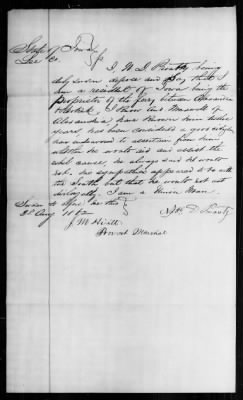 State of Iowa
Lee Co. } ss
I, W. D.            being
duly sworn depose and say that I
am a resident of Iowa being the
Proprietor of the ferry between Alexandria
& Keokuk. I know        Maxwell of
Alexandria, have known him twelve
years, has been considered a good citizen,
have endeavored to ascertain from him
whether he would aid and assist the
rebel cause, he always said he would
not. His sympathies appeared to be with
the South but that he would not act
disloyally. I am a Union Man.
Sworn to & before me this
28 Aug 1862
J. M. Hiatt
Provost Marshal